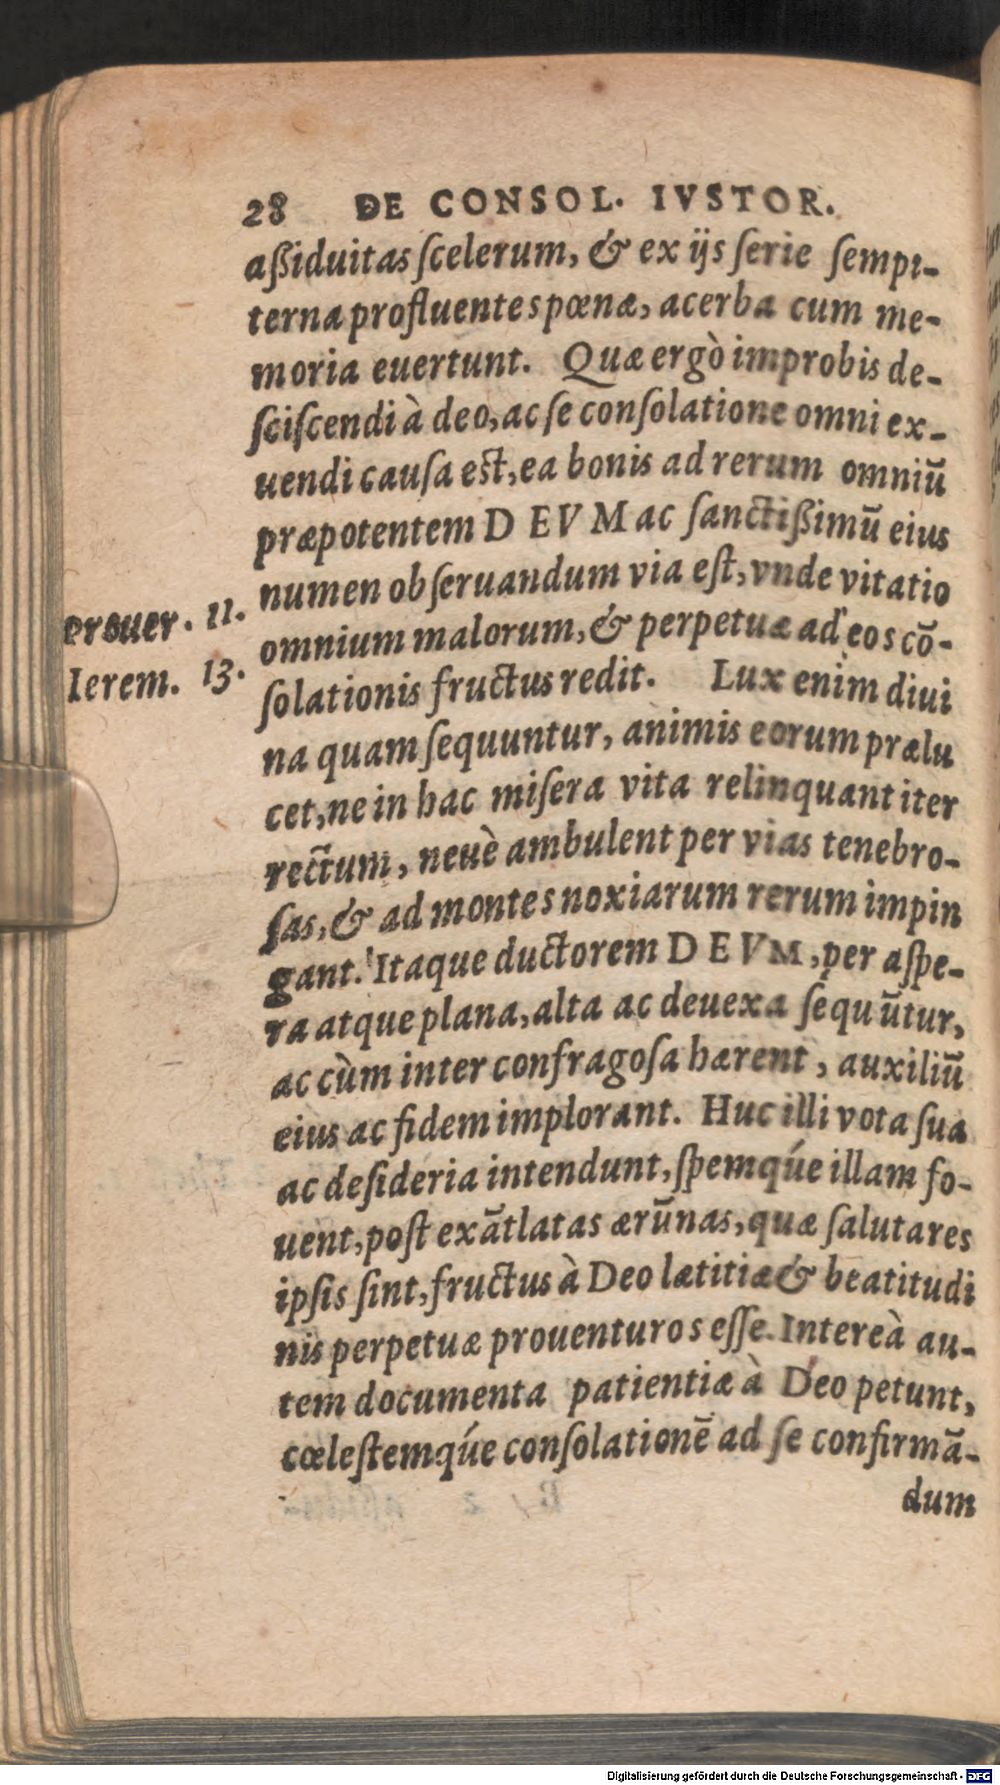 28 DE CONSOL. IVSTOR.
aßiduitas ſcelerum, & ex ijs ſerie ſempi-
terna profluentes pœnæ, acerba cum me-
moria euertunt. Quæ ergò improbis de-
ſciſcendi à deo, ac ſe conſolatione omni ex-
uendi cauſa eſt, ea bonis ad rerum omniũ
præpotentem DEVM ac ſanctißimũ eius
numen obſeruandum via eſt, vnde vitatio
omnium malorum, & perpetuæ ad eos cõ-
ſolationis fructus redit. Lux enim diui
na quam ſequuntur, animis eorum prælu
cet, ne in hac miſera vita relinquant iter
rectum, neuè ambulent per vias tenebro-
ſas, & ad montes noxiarum rerum impin
gant. Itaque ductorem DEVM, per aſpe-
ra atque plana, alta ac deuexa ſequũtur,
ac cùm inter confragoſa hærent, auxiliũ
eius ac fidem implorant. Huc illi vota ſua
ac deſideria intendunt, ſpemqúe illam fo-
uent, poſt exãtlatas ærũnas, quæ ſalutares
ipſis ſint, fructus à Deo lætitiæ & beatitudi
nis perpetuæ prouenturos eſſe. Intereà au-
tem documenta patientiæ à Deo petunt,
cœleſtemqúe conſolationẽ ad ſe confirmã-
dum
Prouer. 11.
Ierem. 13.
Digitalisierung gefördert durch die Deutsche Forschungsgemeinschaft - DFG